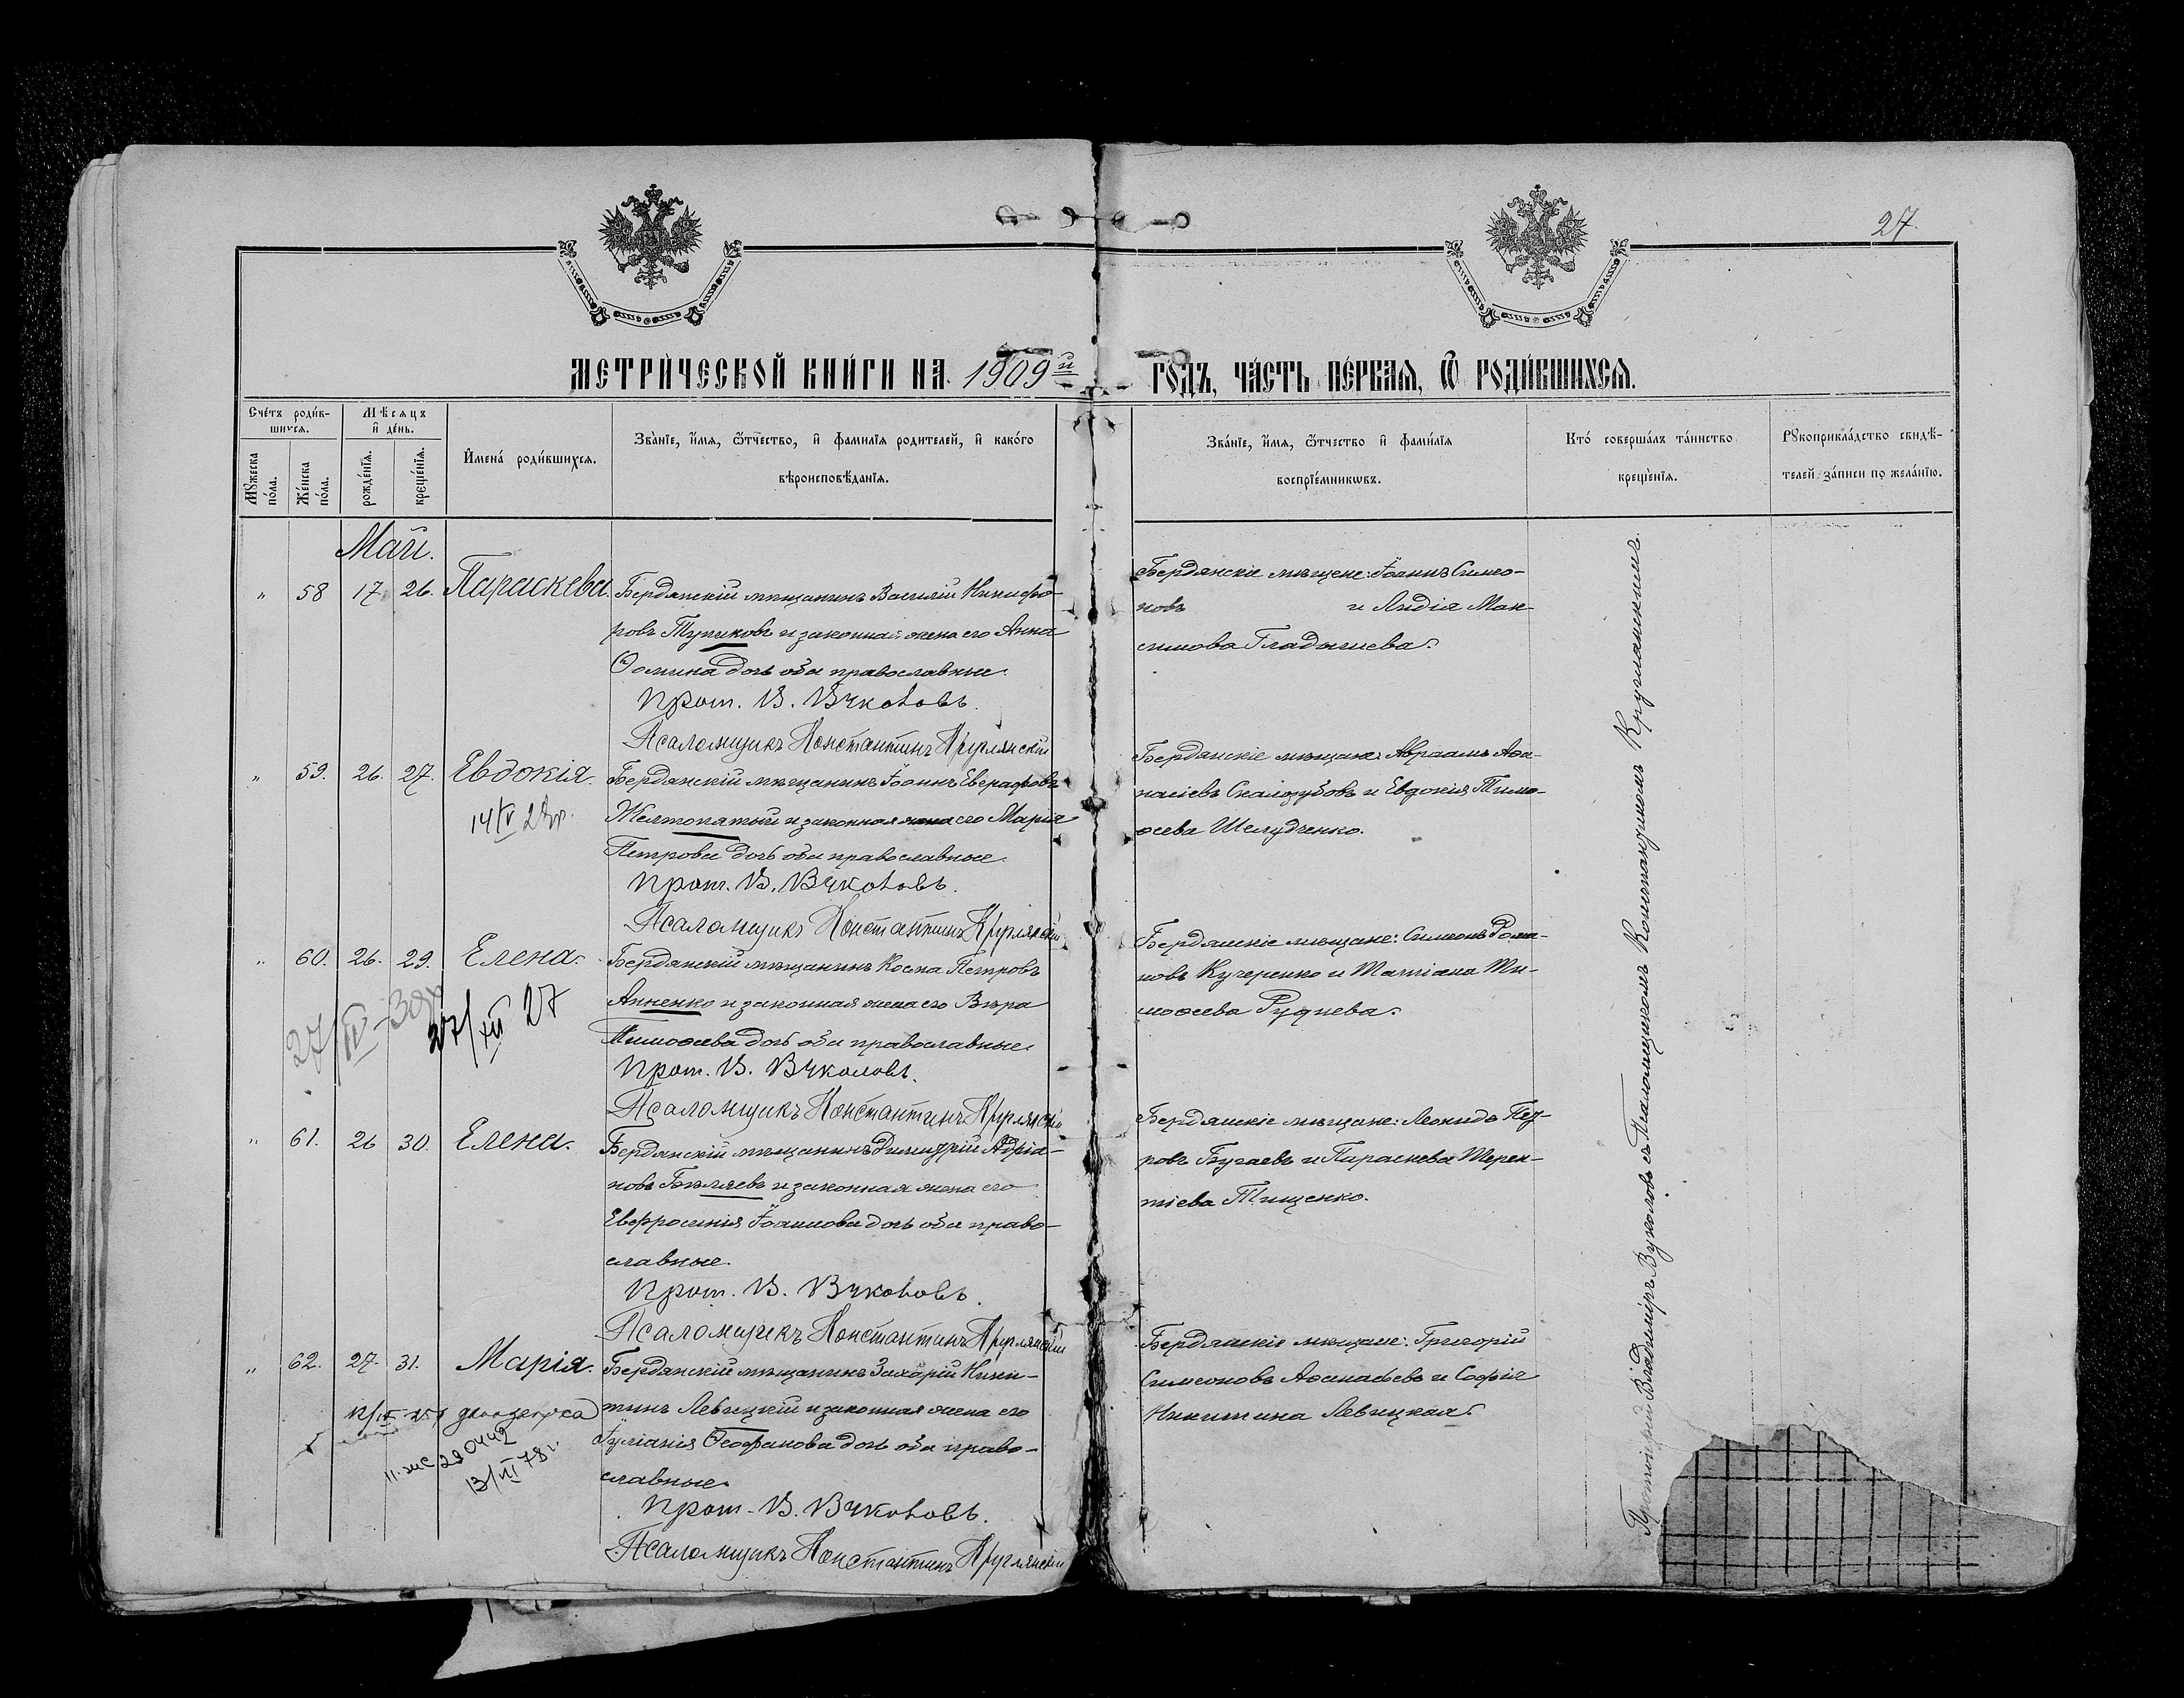 27.
МЕТРИ́ЧЕСКОЙ КНИ́ГИ НА 1909й ГО́ДЪ, ЧА́СТЬ ПЕ́РВАЯ, Ѽ РОДИ́ВШИХСЯ.
Счётъ роди́в-
шихся.
Мѣсяцъ
и де́нь.
Мꙋжеска по́ла.
Же́нска по́ла.
рожде́нїя.
креще́нїя.
Имена́ роди́вшихся.
Зва́нїе, и́мя, ѻ́тчество, и фами́лїя родителей, и како́го
вѣроисповѣ́данїя.
Зва́нїе, и́мя, ѻ́тчество и фами́лїя
воспрїе́мникѡвъ.
Кто́ соверша́лъ та́инство
креще́нїя.
Рꙋкоприкла́дство свидѣ́-
телей за́писи по жела́нїю.
Май.
" 58 17 26. Параскева.
Бердянскій мѣщанинъ Василій Никифо-
ровъ Тупиковъ и законная жена его Анна
Ѳомина дочь оба православные.
Прот. В. Вуколовъ.
Псаломщикъ Константинъ Круглянскій
Бердянскіе мѣщане: Іоаннъ Симео-
новъ и Лидія Мак-
симова Гладышева.
" 59. 26. 27. Евдокія.
14/V 28г.
Бердянскій мѣщанинъ Іоаннъ Евграфовъ
Желтопятый и законная жена его Марія
Петрова дочь оба православные.
Прот. В. Вуколовъ.
Псаломщикъ Константинъ Круглянскій
Бердянскіе мѣщане: Авраамъ Аѳа-
насіевъ Скалозубовъ и Евдокія Тимо-
ѳеева Шелудченко.
" 60. 26. 29. Елена.
27/IV-30г
27/XII 27
Бердянскій мѣщанинъ Косма Петровъ
Анненко и законная жена его Вѣра
Тимоѳеева дочь оба православные.
Прот. В. Вуколовъ.
Псаломщикъ Константинъ Круглянскій
Бердянскіе мѣщане: Симеонъ Рома-
новъ Кучеренко и Татіана Ти-
моѳеева Руднева.
" 61. 26 30. Елена.
Бердянскій мѣщанинъ Димитрій Адріа-
новъ Бѣляевъ и законная жена его
Евфросинія Іоаннова дочь оба право-
славные.
Прот. В. Вуколовъ.
Псаломщикъ Константинъ Круглянскій
Бердянскіе мѣщане: Леонидъ Пет-
ровъ Бугаевъ и Параскева Терен-
тіева Тищенко.
" 62. 27. 31. Марія.
13/VI 78г.
Бердянскій мѣщанинъ Захарій Ники-
тинъ Левицкій и законная жена его
Іуліанія Ѳеофанова дочь оба право-
славные.
Прот. В. Вуколовъ.
Псаломщикъ Константинъ Круглянскій
Бердянскіе мѣщане: Григорій
Симеоновъ Аѳанасьевъ и Софія
Никитина Левицкая.
Протоіерей Владиміръ Вуколовъ съ Псаломщикомъ Константиномъ Круглянскимъ.